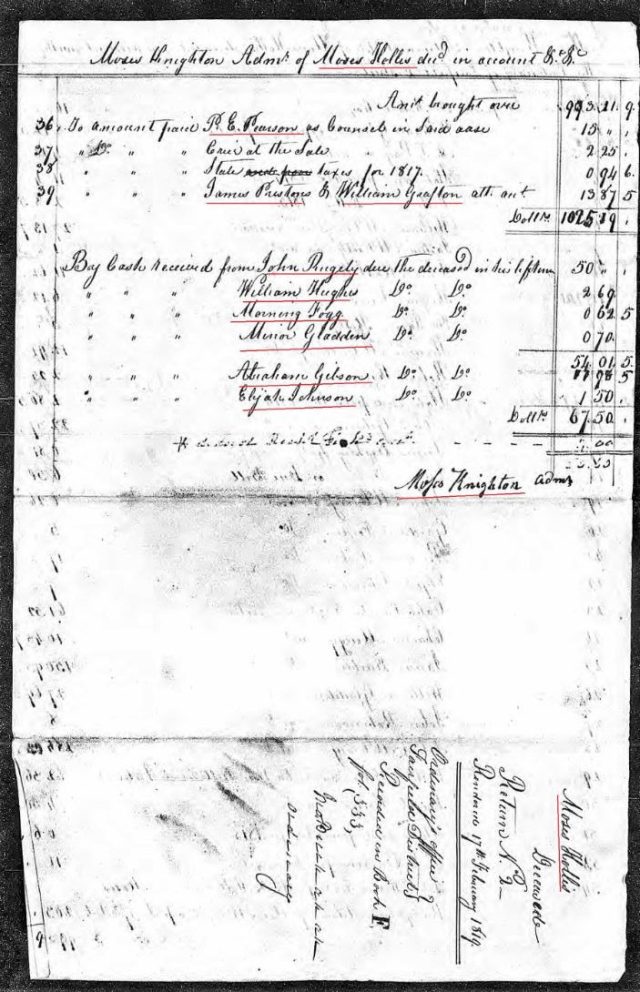 Moses Knighton Admr. of Moses Hollis decd. in account &c &c
Amt. brought over 993 21 9
36 To amount paid P. E. Pearson as Counsel in said case 15 " ,
37 " Do. " " Crier at the Sale 2 25 ,
38 " " " State taxes for 1817. 0 94 6.
39 " " " James Prestons & William Grafton att. 13 87 5
Dollrs 1025 29 ,
By Cash received from John Rugely due the deceased in his lifetime 50 " ,
" " " William Hughs Do. Do. 2 69
" " " Morning Fogg Do. Do. 0 62 5
" " " Minor Gladden Do. Do. 0 70
54 01 5.
" " " Abraham Gibson Do. Do. 5
" " " Elijah Johnson Do. Do. 1 50 ,
Dollrs 67 50 ,
Moses Knighton Admr
Moses Hollis
Deceased
Return No. 2
Rendered 17th February 1819.
Ordinary's office
Fairfield District
Recorded in Book F,
fol. 333,
Ordinary